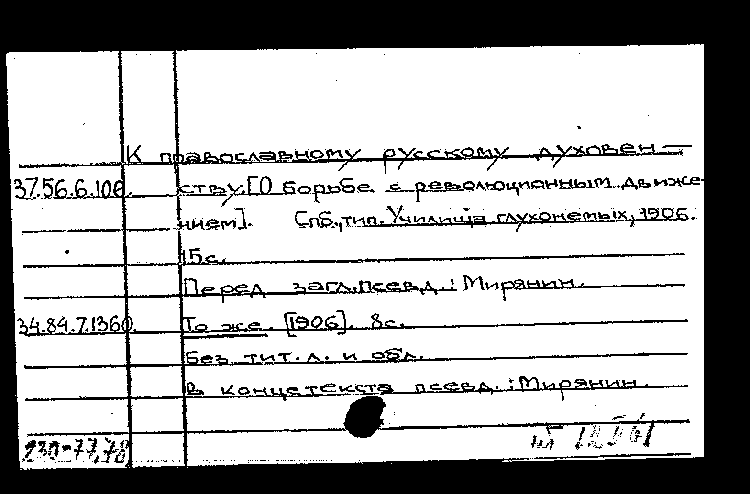 К православному русскому духовен-
37.56.6.106. ству. [О борьбе с революционным движе-
нием]. Спб., тип. Училища глухонемых, 1906.
15с.
Перед загл. псевд.: Мирянин.
34.84.7.1360. То же. [1906]. 8с.
Без тит. л. и обл.
В конце текста псевд.: Мирянин.
230-77,78